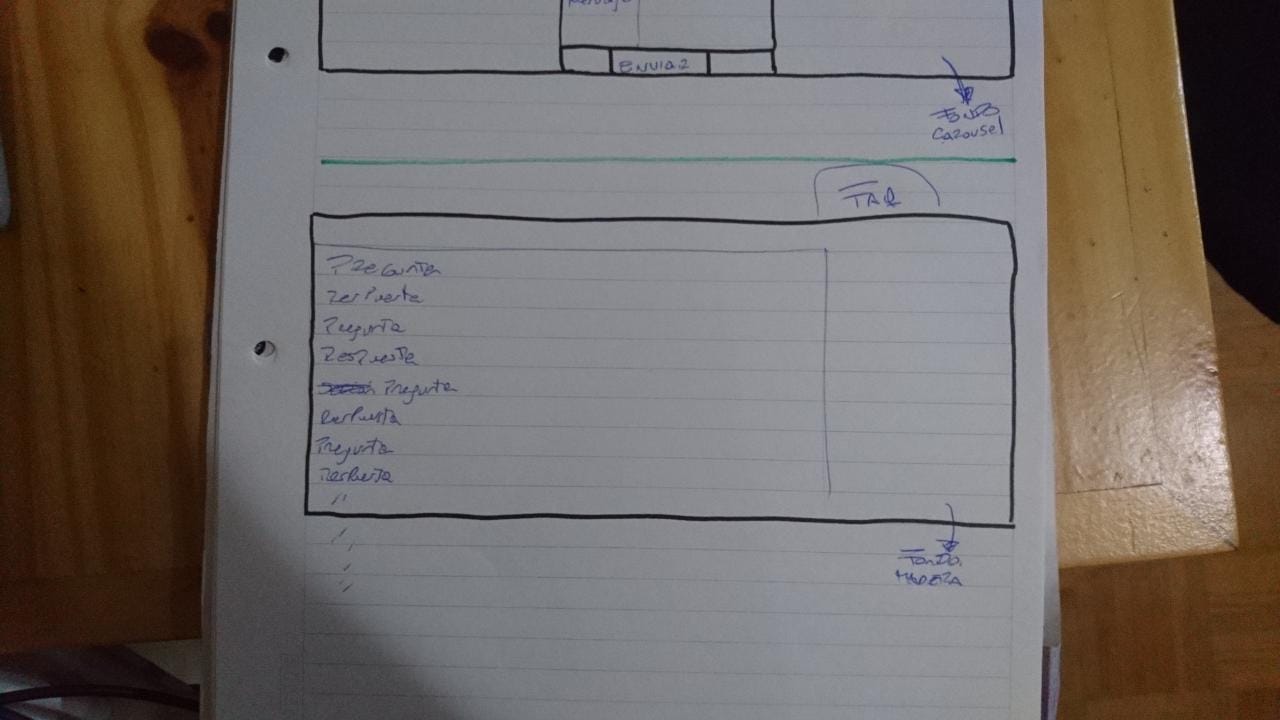 Mensaje
Enviar
Fondo
Carousel
FAQ
Pregunta
Respuesta
Pregunta
Respuesta
Pregunta
Respuesta
Pregunta
Respuesta
"
"
"
"
Fondo
MADERA